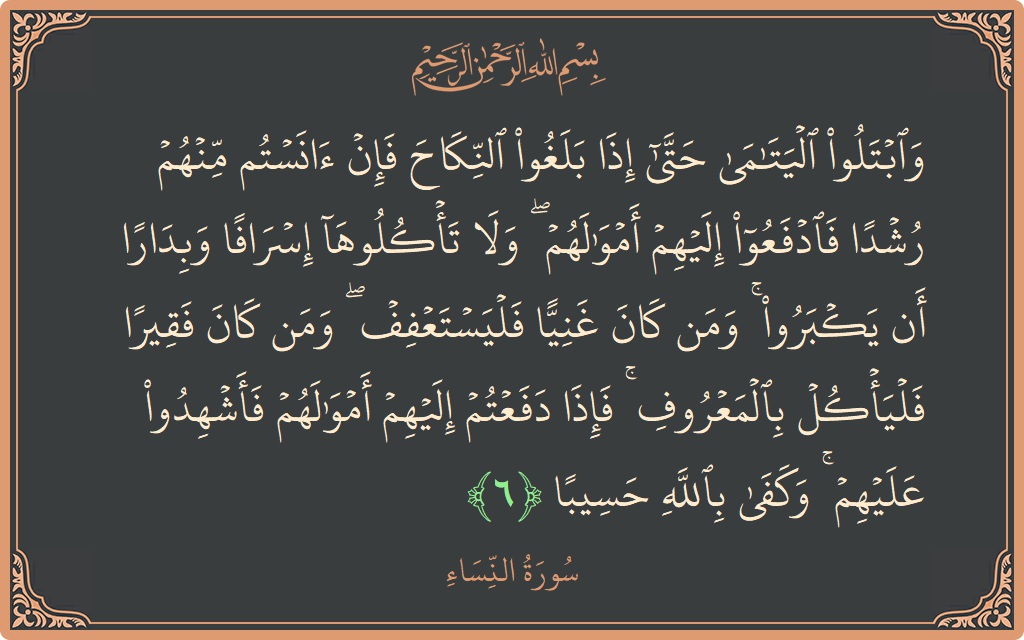 بِسْمِ اللَّهِ الرَّحْمَٰنِ الرَّحِيمِ
وَٱبْتَلُوا۟ ٱلْيَتَـٰمَىٰ حَتَّىٰٓ إِذَا بَلَغُوا۟ ٱلنِّكَاحَ فَإِنْ ءَانَسْتُم مِّنْهُمْ
رُشْدًا فَٱدْفَعُوٓا۟ إِلَيْهِمْ أَمْوَٰلَهُمْ ۖ وَلَا تَأْكُلُوهَآ إِسْرَافًا وَبِدَارًا
أَن يَكْبَرُوا۟ ۚ وَمَن كَانَ غَنِيًّا فَلْيَسْتَعْفِفْ ۖ وَمَن كَانَ فَقِيرًا
فَلْيَأْكُلْ بِٱلْمَعْرُوفِ ۚ فَإِذَا دَفَعْتُمْ إِلَيْهِمْ أَمْوَٰلَهُمْ فَأَشْهِدُوا۟
عَلَيْهِمْ ۚ وَكَفَىٰ بِٱللَّهِ حَسِيبًا ﴿٦﴾
سُورَةُ النِّسَاءِ